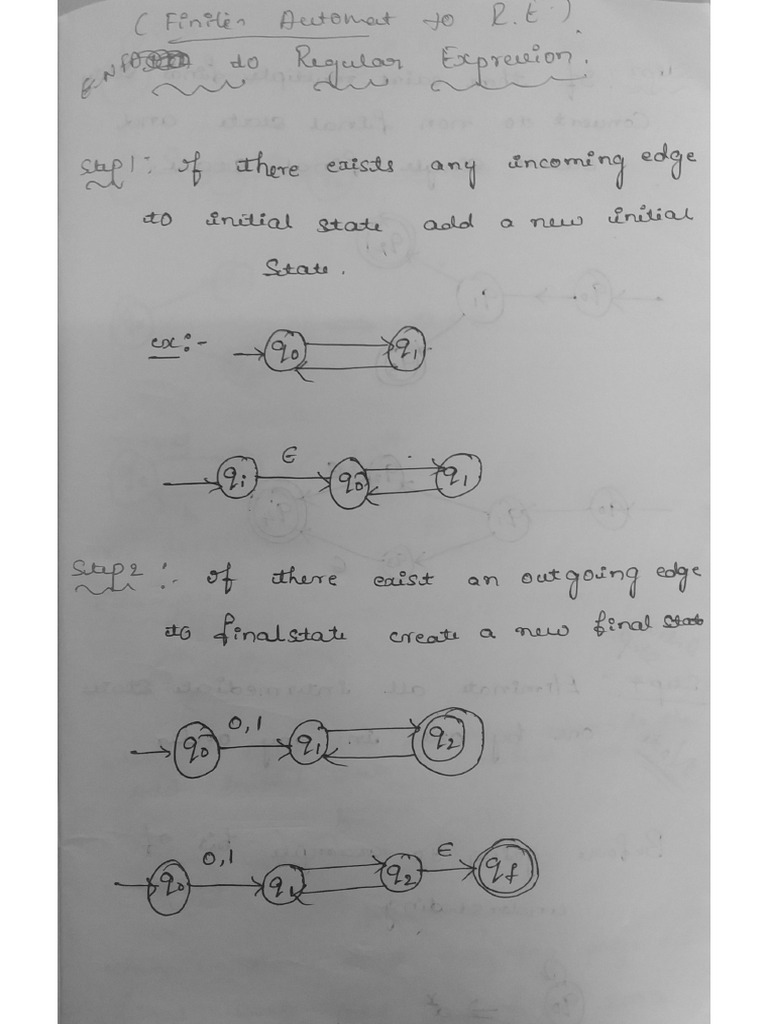 ( Finiter Automat to R.E ).
to Regular Expression.
Step 1: If there exists any incoming edge
to initial state add a new initial
State.
ex:-
q0 q1
ε
qi q0 q1
Step 2 :- If there exist an outgoing edge
to final state create a new final state
0,1
q0 q1 q2
0,1 ε
q0 q1 q2 qf